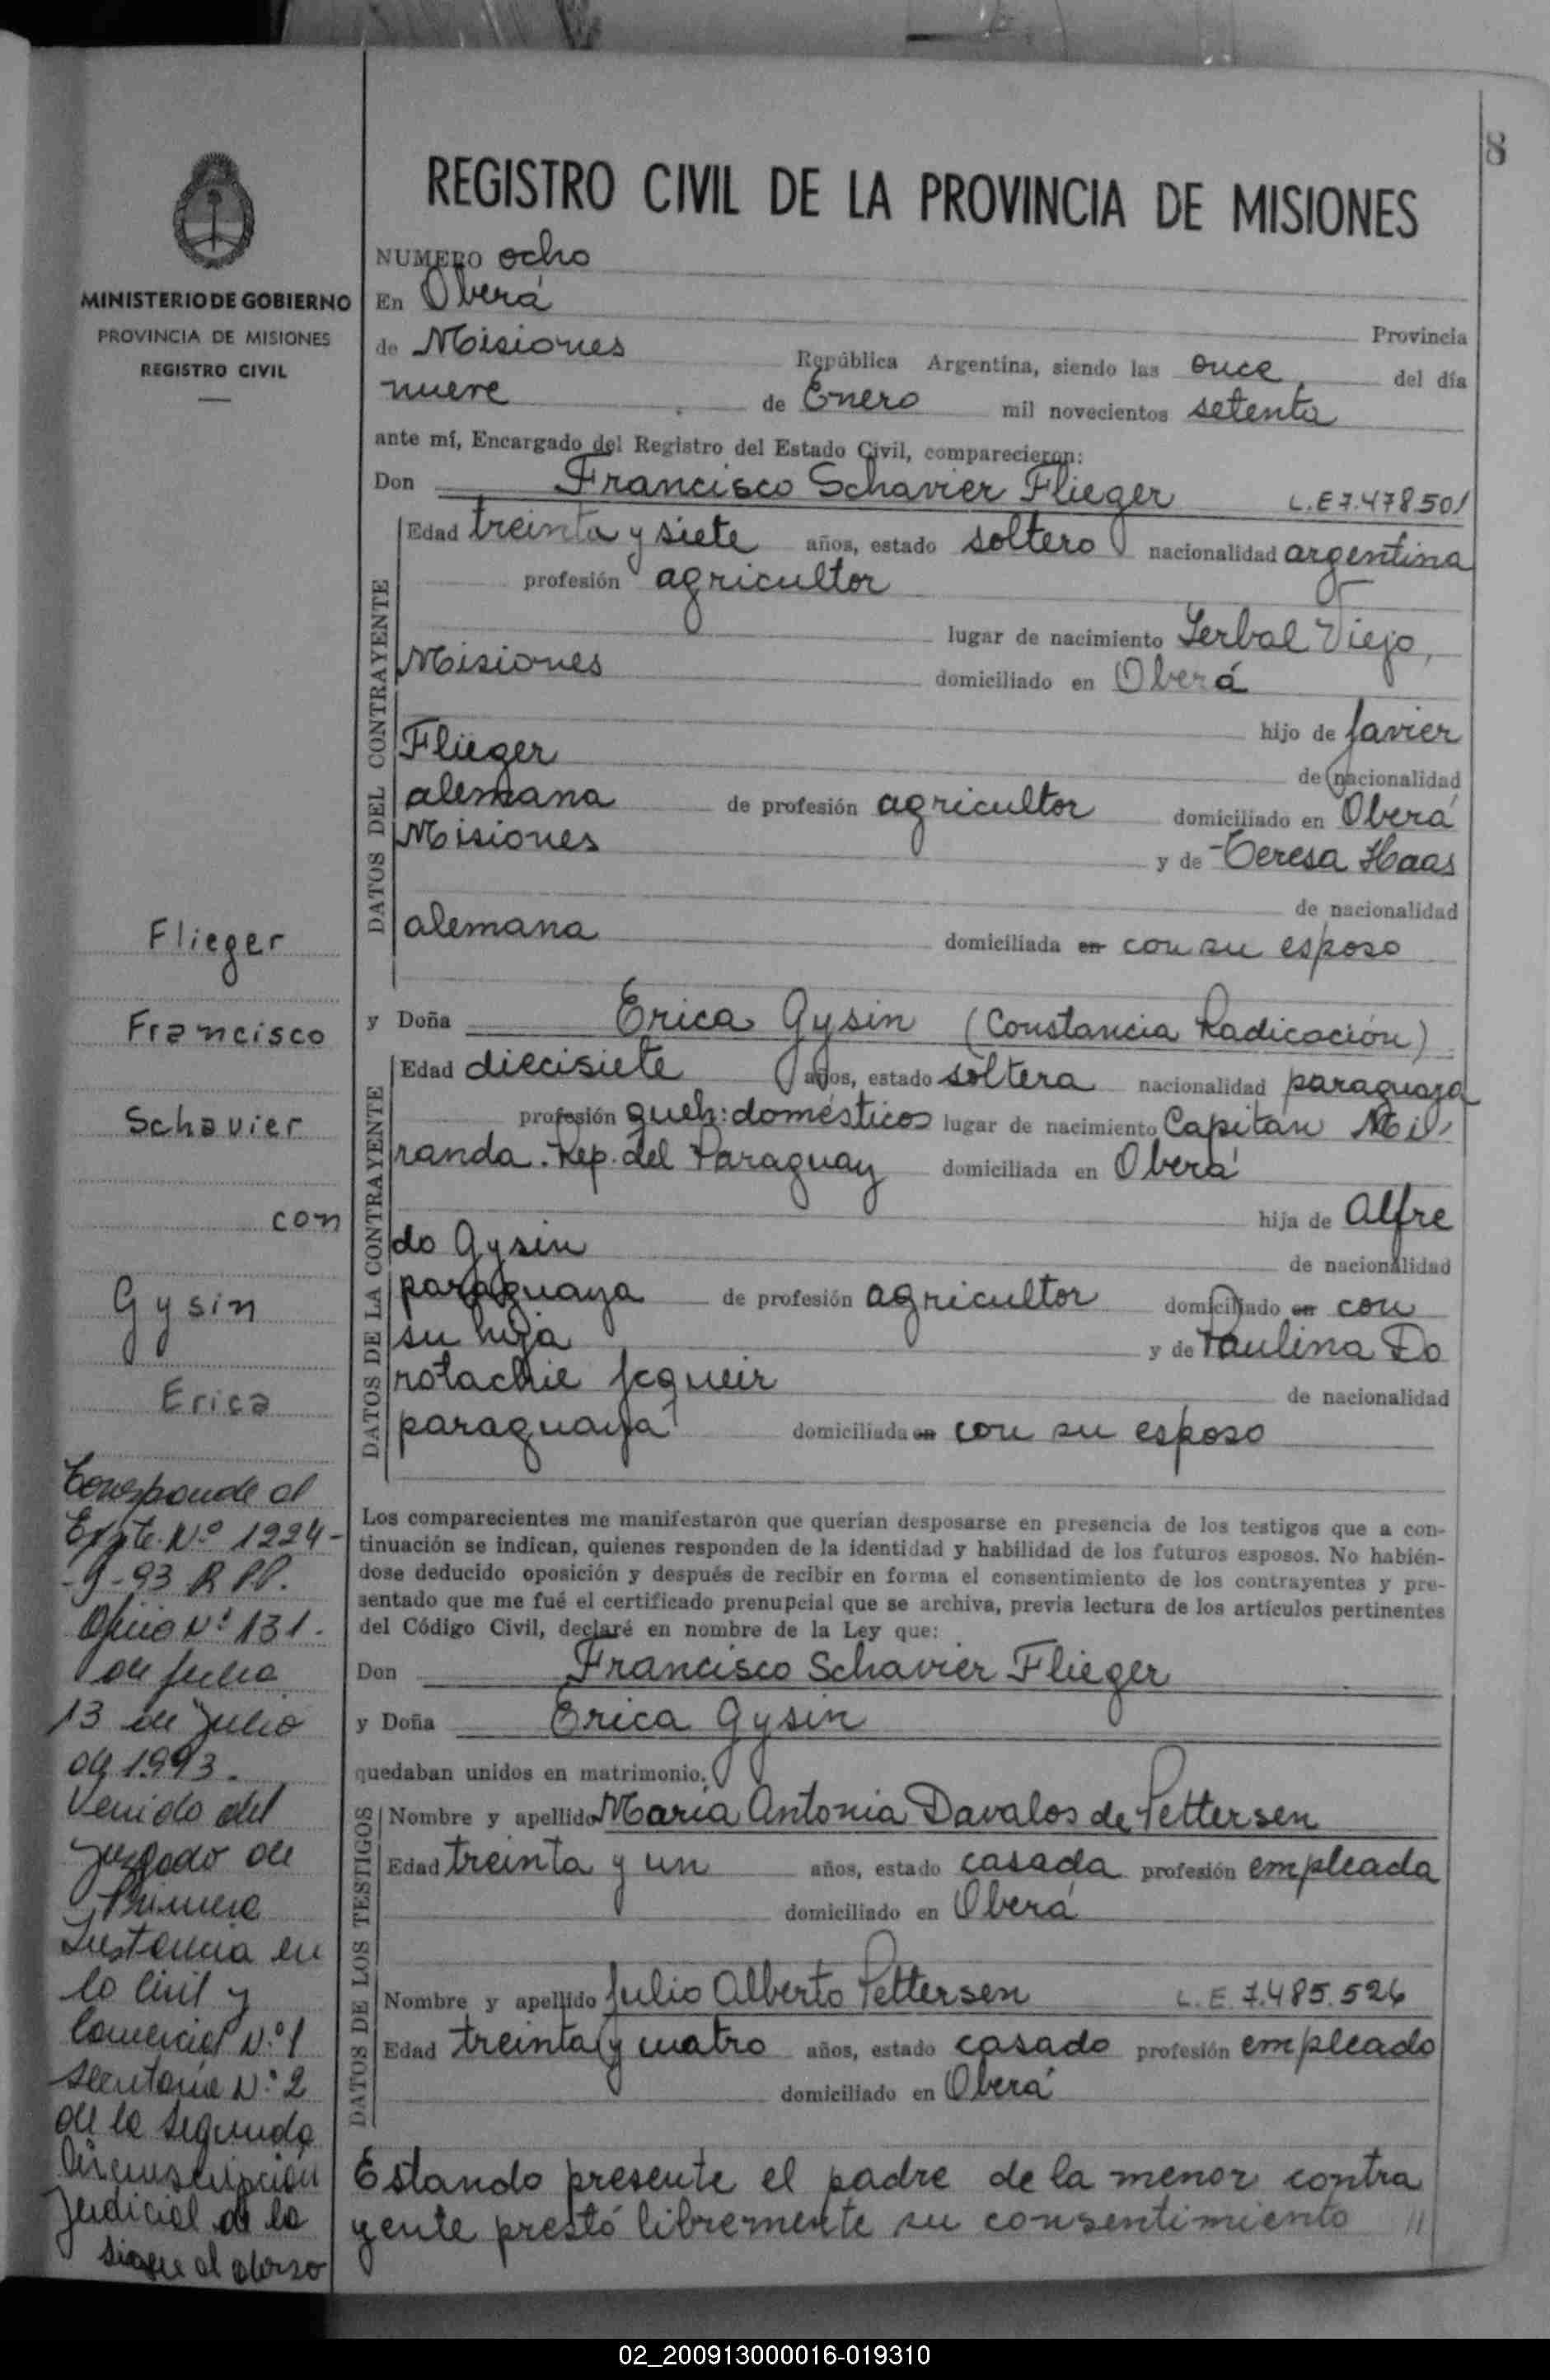 8
REGISTRO CIVIL DE LA PROVINCIA DE MISIONES
MINISTERIO DE GOBIERNO
PROVINCIA DE MISIONES
REGISTRO CIVIL
NUMERO ocho
En Oberá
Provincia
de Misiones República Argentina, siendo las once del día
nueve de Enero mil novecientos setenta
ante mí, Encargado del Registro del Estado Civil, comparecieron:
Don Francisco Schavier Flieger L.E 7.478.501
DATOS DEL CONTRAYENTE
Edad treinta y siete años, estado soltero nacionalidad argentina
profesión agricultor
lugar de nacimiento Yerbal Viejo,
Misiones domiciliado en Oberá
hijo de Javier
Flieger
de nacionalidad
alemana de profesión agricultor domiciliado en Oberá
Misiones y de Teresa Haas
de nacionalidad
alemana domiciliada en con su esposo
y Doña Erica Gysin (Constancia Radicación)
DATOS DE LA CONTRAYENTE
Edad diecisiete años, estado soltera nacionalidad paraguaya
profesión queh: domésticos lugar de nacimiento Capitán Mi
randa. Rep. del Paraguay domiciliada en Oberá
hija de Alfre
do Gysin
de nacionalidad
paraguaya de profesión agricultor domiciliado en con
su hija y de Paulina Do
rotachie
de nacionalidad
paraguaya domiciliada en con su esposo
Los comparecientes me manifestaron que querían desposarse en presencia de los testigos que a con-
tinuación se indican, quienes responden de la identidad y habilidad de los futuros esposos. No habién-
dose deducido oposición y después de recibir en forma el consentimiento de los contrayentes y pre-
sentado que me fué el certificado prenupcial que se archiva, previa lectura de los artículos pertinentes
del Código Civil, declaré en nombre de la Ley que:
Don Francisco Schavier Flieger
y Doña Erica Gysin
quedaban unidos en matrimonio.
DATOS DE LOS TESTIGOS
Nombre y apellido María Antonia Davalos de Pettersen
Edad treinta y un años, estado casada profesión empleada
domiciliado en Oberá
Nombre y apellido Julio Alberto Pettersen L.E. 7.485.526
Edad treinta y cuatro años, estado casado profesión empleado
domiciliado en Oberá
Estando presente el padre de la menor contra
yente prestó libremente su consentimiento //
Flieger
Francisco
Schavier
con
Gysin
Erica
Corresponde al
Expte. Nº 1224-
93
Oficio Nº 131.
de fecha
13 de Julio
de 1.993.
Venido del
Juzgado de
Primera
Instancia en
lo Civil y
Comercial Nº 1
Secretaría Nº 2
de la Segunda
Circunscripción
Judicial de la
sigue al dorso
02_200913000016-019310